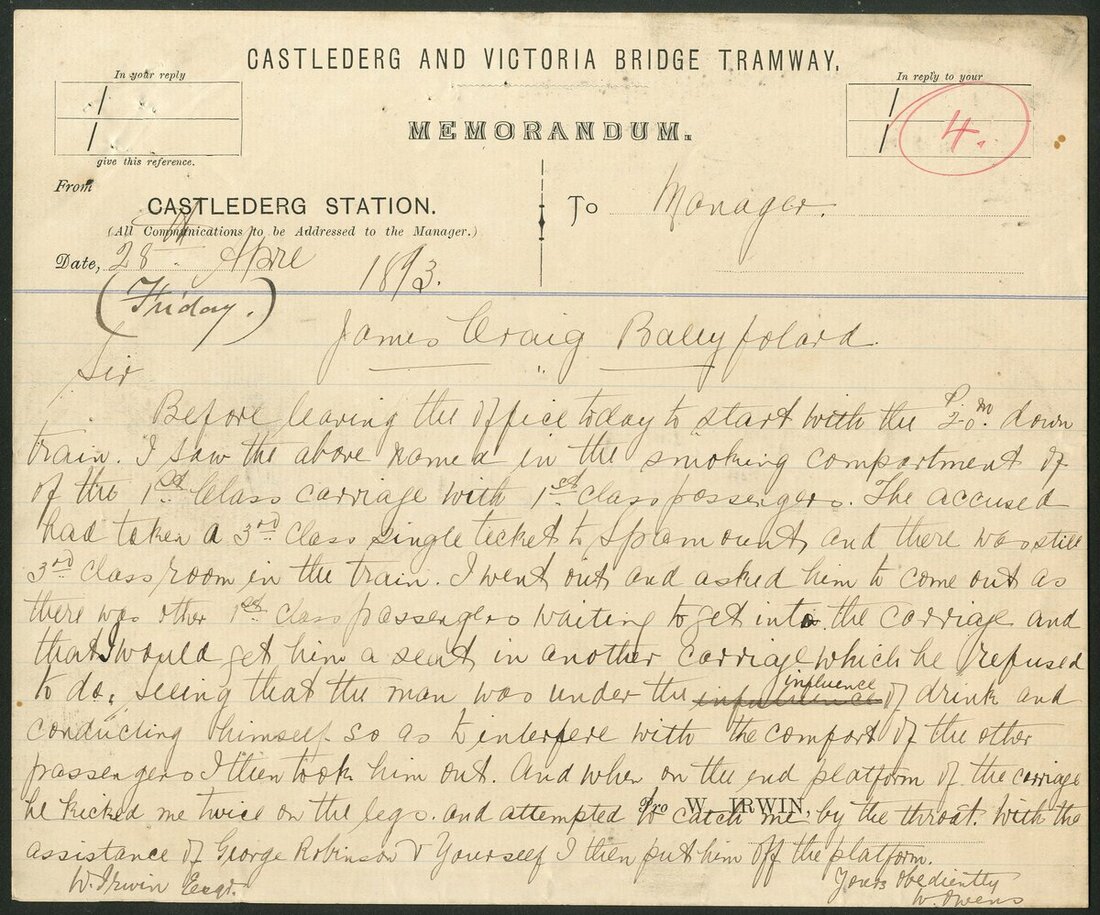 CASTLEDERG AND VICTORIA BRIDGE TRAMWAY,
In your reply
give this reference.
MEMORANDUM.
In reply to your
4.
From
CASTLEDERG STATION.
(All Communications to be Addressed to the Manager.)
To Manager.
Date, 28th Apre 1893.
(Friday.)
James Craig Ballyfolard.
Sir
Before leaving the office today to start with the 2-0 P.m. down
train. I saw the above named in the smoking compartment of
of the 1st Class carriage with 1st Class passengers. The accused
had taken a 3rd Class single ticket to Spamount, and there was still
3rd class room in the train. I went out and asked him to come out as
there was other 1st class passengers waiting to get into the carriage and
that I would get him a seat in another carriage which he refused
to do, seeing that the man was under the influence of drink and
conducting himself so as to interfere with the comfort of the other
passengers I then took him out. And when on the end platform of the carriage
he kicked me twice on the legs. and attempted to catch me by the throat. With the
Pro W. IRWIN,
assistance of George Robinson & Yourself I then put him off the platform.
W. Irwin Esqr.
Yours Obediently
W. Owens